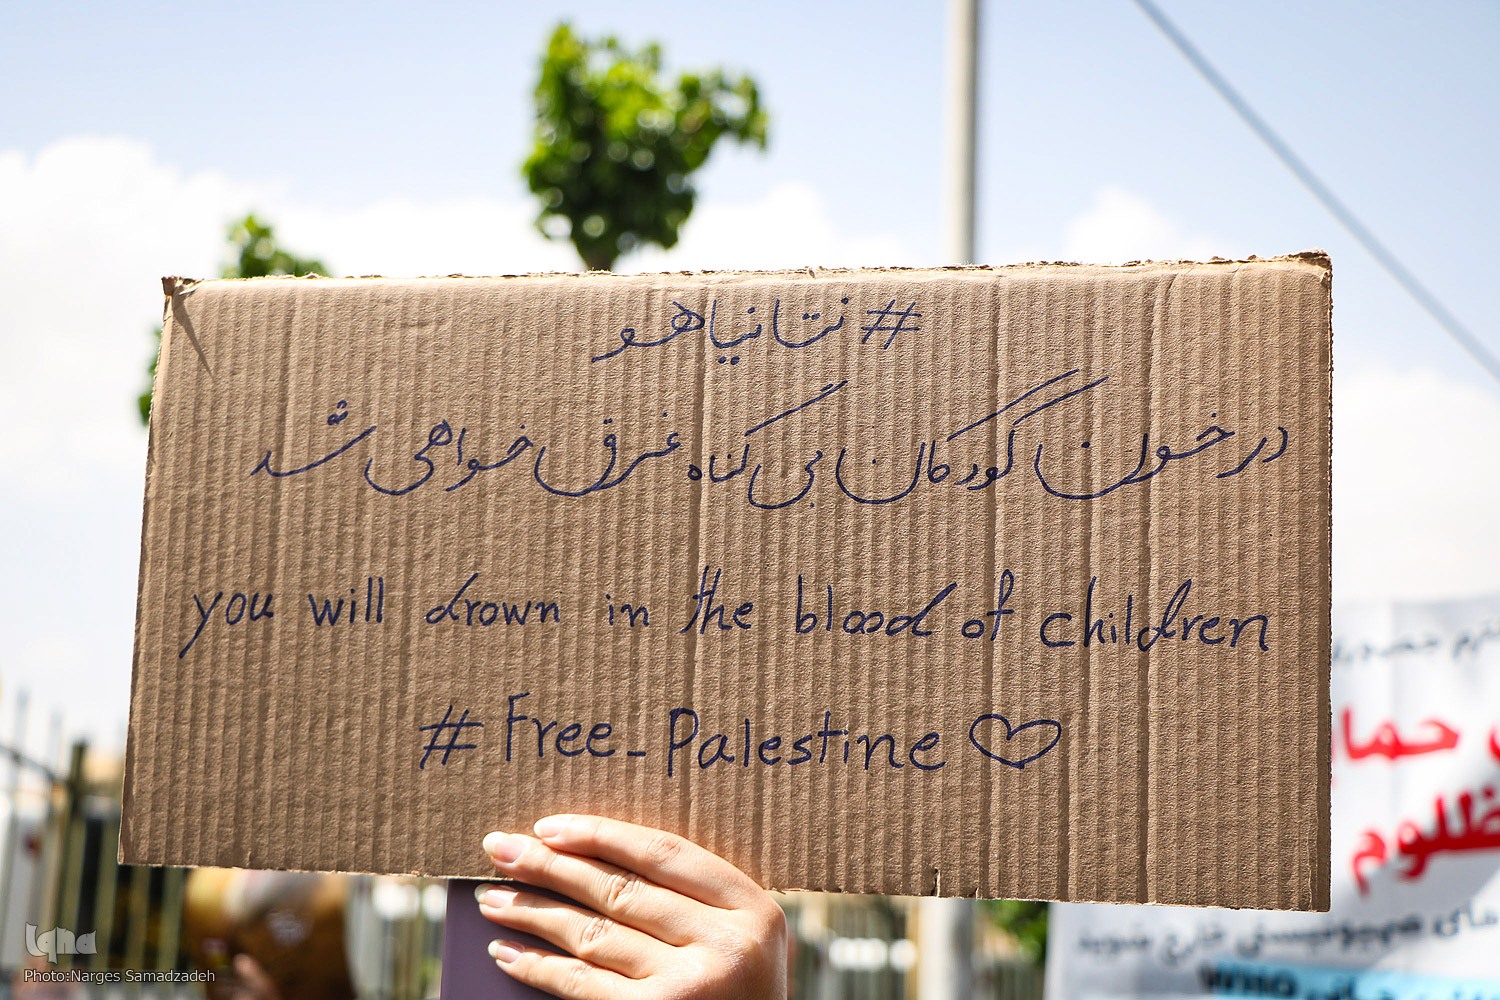 #نتانیاهو
در خون کودکان بی گناه غرق خواهی شد
you will drown in the blood of children
#Free_Palestine
حما
ظلوم
WHO
iqna
Photo:Narges Samadzadeh